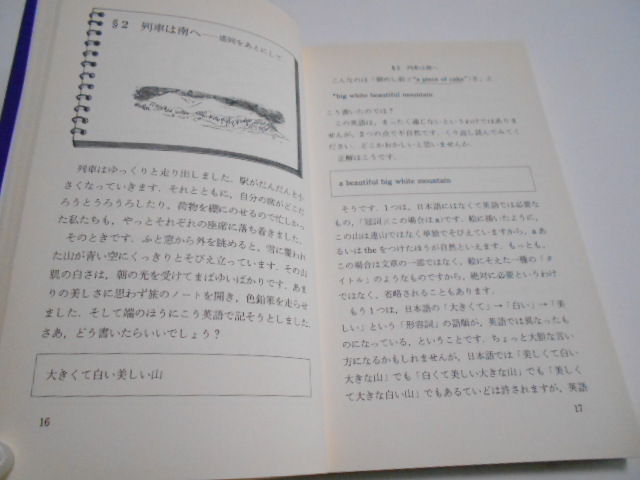 §2 列車は南へ——盛岡をあとにして
列車はゆっくりと走り出しました．駅がだんだんと小
さくなっていきます．それとともに，自分の席がどこだ
ろうとうろうろしたり，荷物を棚にのせるので忙しかっ
た私たちも，やっとそれぞれの座席に落ち着きました．
そのときです．ふと窓から外を眺めると，雪に覆われ
た山が青い空にくっきりとそびえ立っています．その山
肌の白さは，朝の光を受けてまばゆいばかりです．あま
りの美しさに思わず旅のノートを開き，色鉛筆を走らせ
ました．そして端のほうにこう英語で記そうとしました．
さあ，どう書いたらいいでしょう？
大きくて白い美しい山
16
§2 列車は南へ
こんなのは「朝めし前」("a piece of cake")さ，と
*big white beautiful mountain
こう書いたのでは？
この英語は，まったく通じないというわけではありま
せんが，2つの点で不自然です．くり返し読んでみてく
ださい．どこかおかしいと思いませんか．
正解はこうです．
a beautiful big white mountain
そうです．1つは，日本語にはなくて英語では必要な
もの，「冠詞」(この場合はa)です．絵に描いたように，
この山は連山ではなく単独でそびえていますから，aあ
るいはtheをつけたほうが自然といえます．もっとも，
この場合は文章の一部ではなく，絵にそえた一種の「タ
イトル」のようなものですから，絶対に必要というわけ
ではなく，省略されることもあります．
もう1つは，日本語の「大きくて」→「白い」→「美
しい」という「形容詞」の語順が，英語では異なったも
のになっている，ということです．ちょっと大胆な言い
方になるかもしれませんが，日本語では「美しくて白い
大きな山」でも「白くて美しい大きな山」でも「美しく
て大きな白い山」でもあるていどは許されますが，英語
17